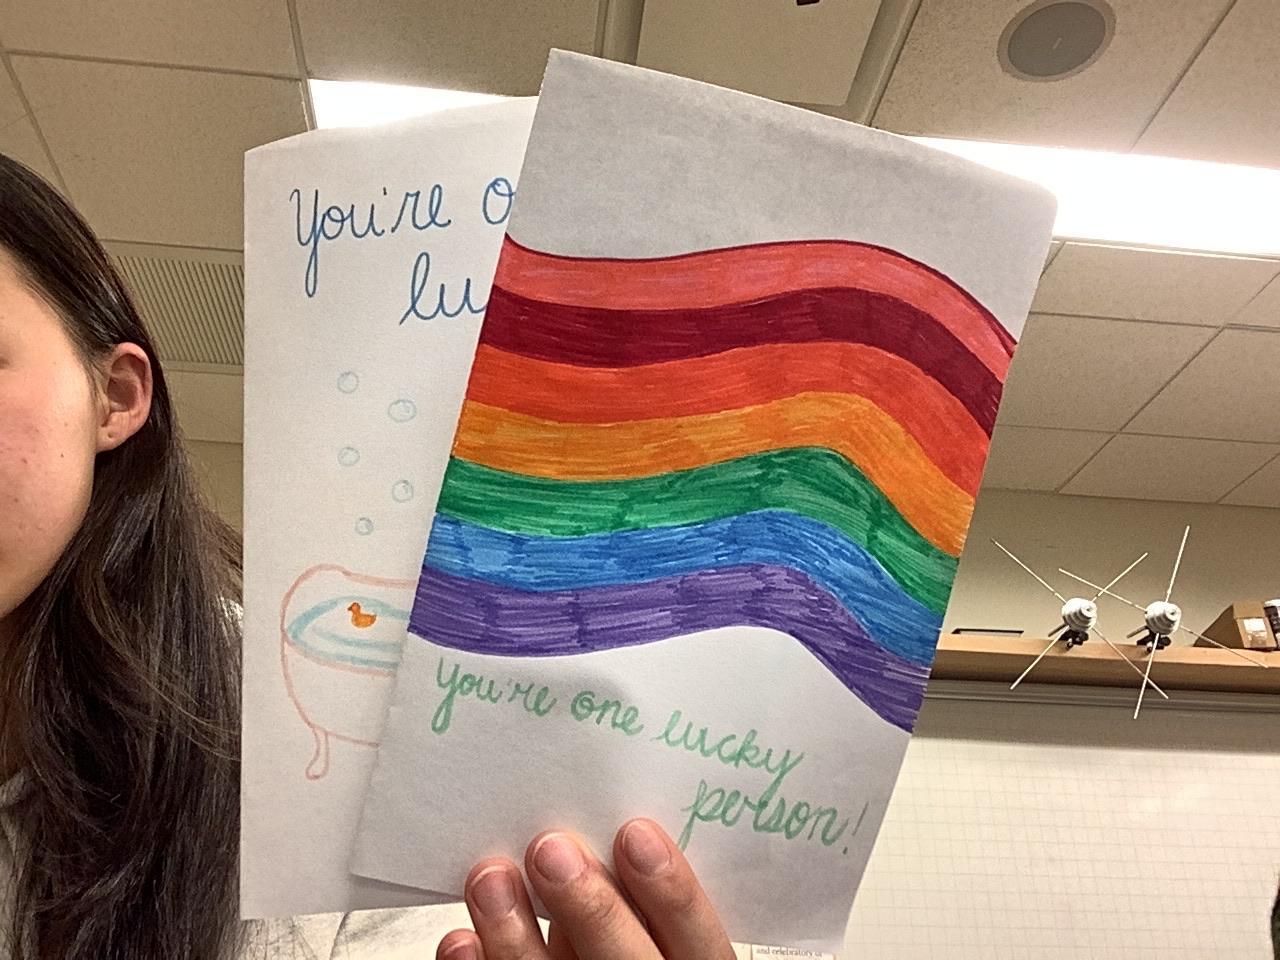 You're o
lu
You're one lucky
person!
and celebratory of